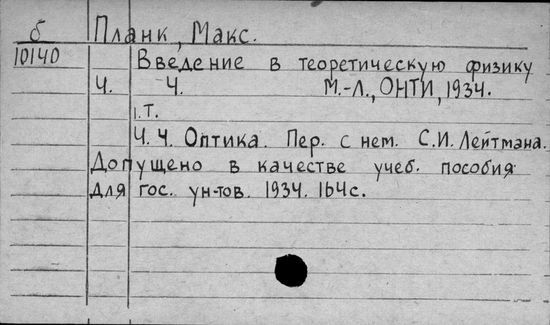 б Планк, Макс.
10140 Введение в теоретическую физику
Ч. Ч. М.-Л., ОНТИ, 1934.
1 т.
Ч. Ч. Оптика. Пер. с нем. С.И. Лейтмана.
Допущено в качестве учеб. пособия
для гос. ун-тов. 1934. 164с.